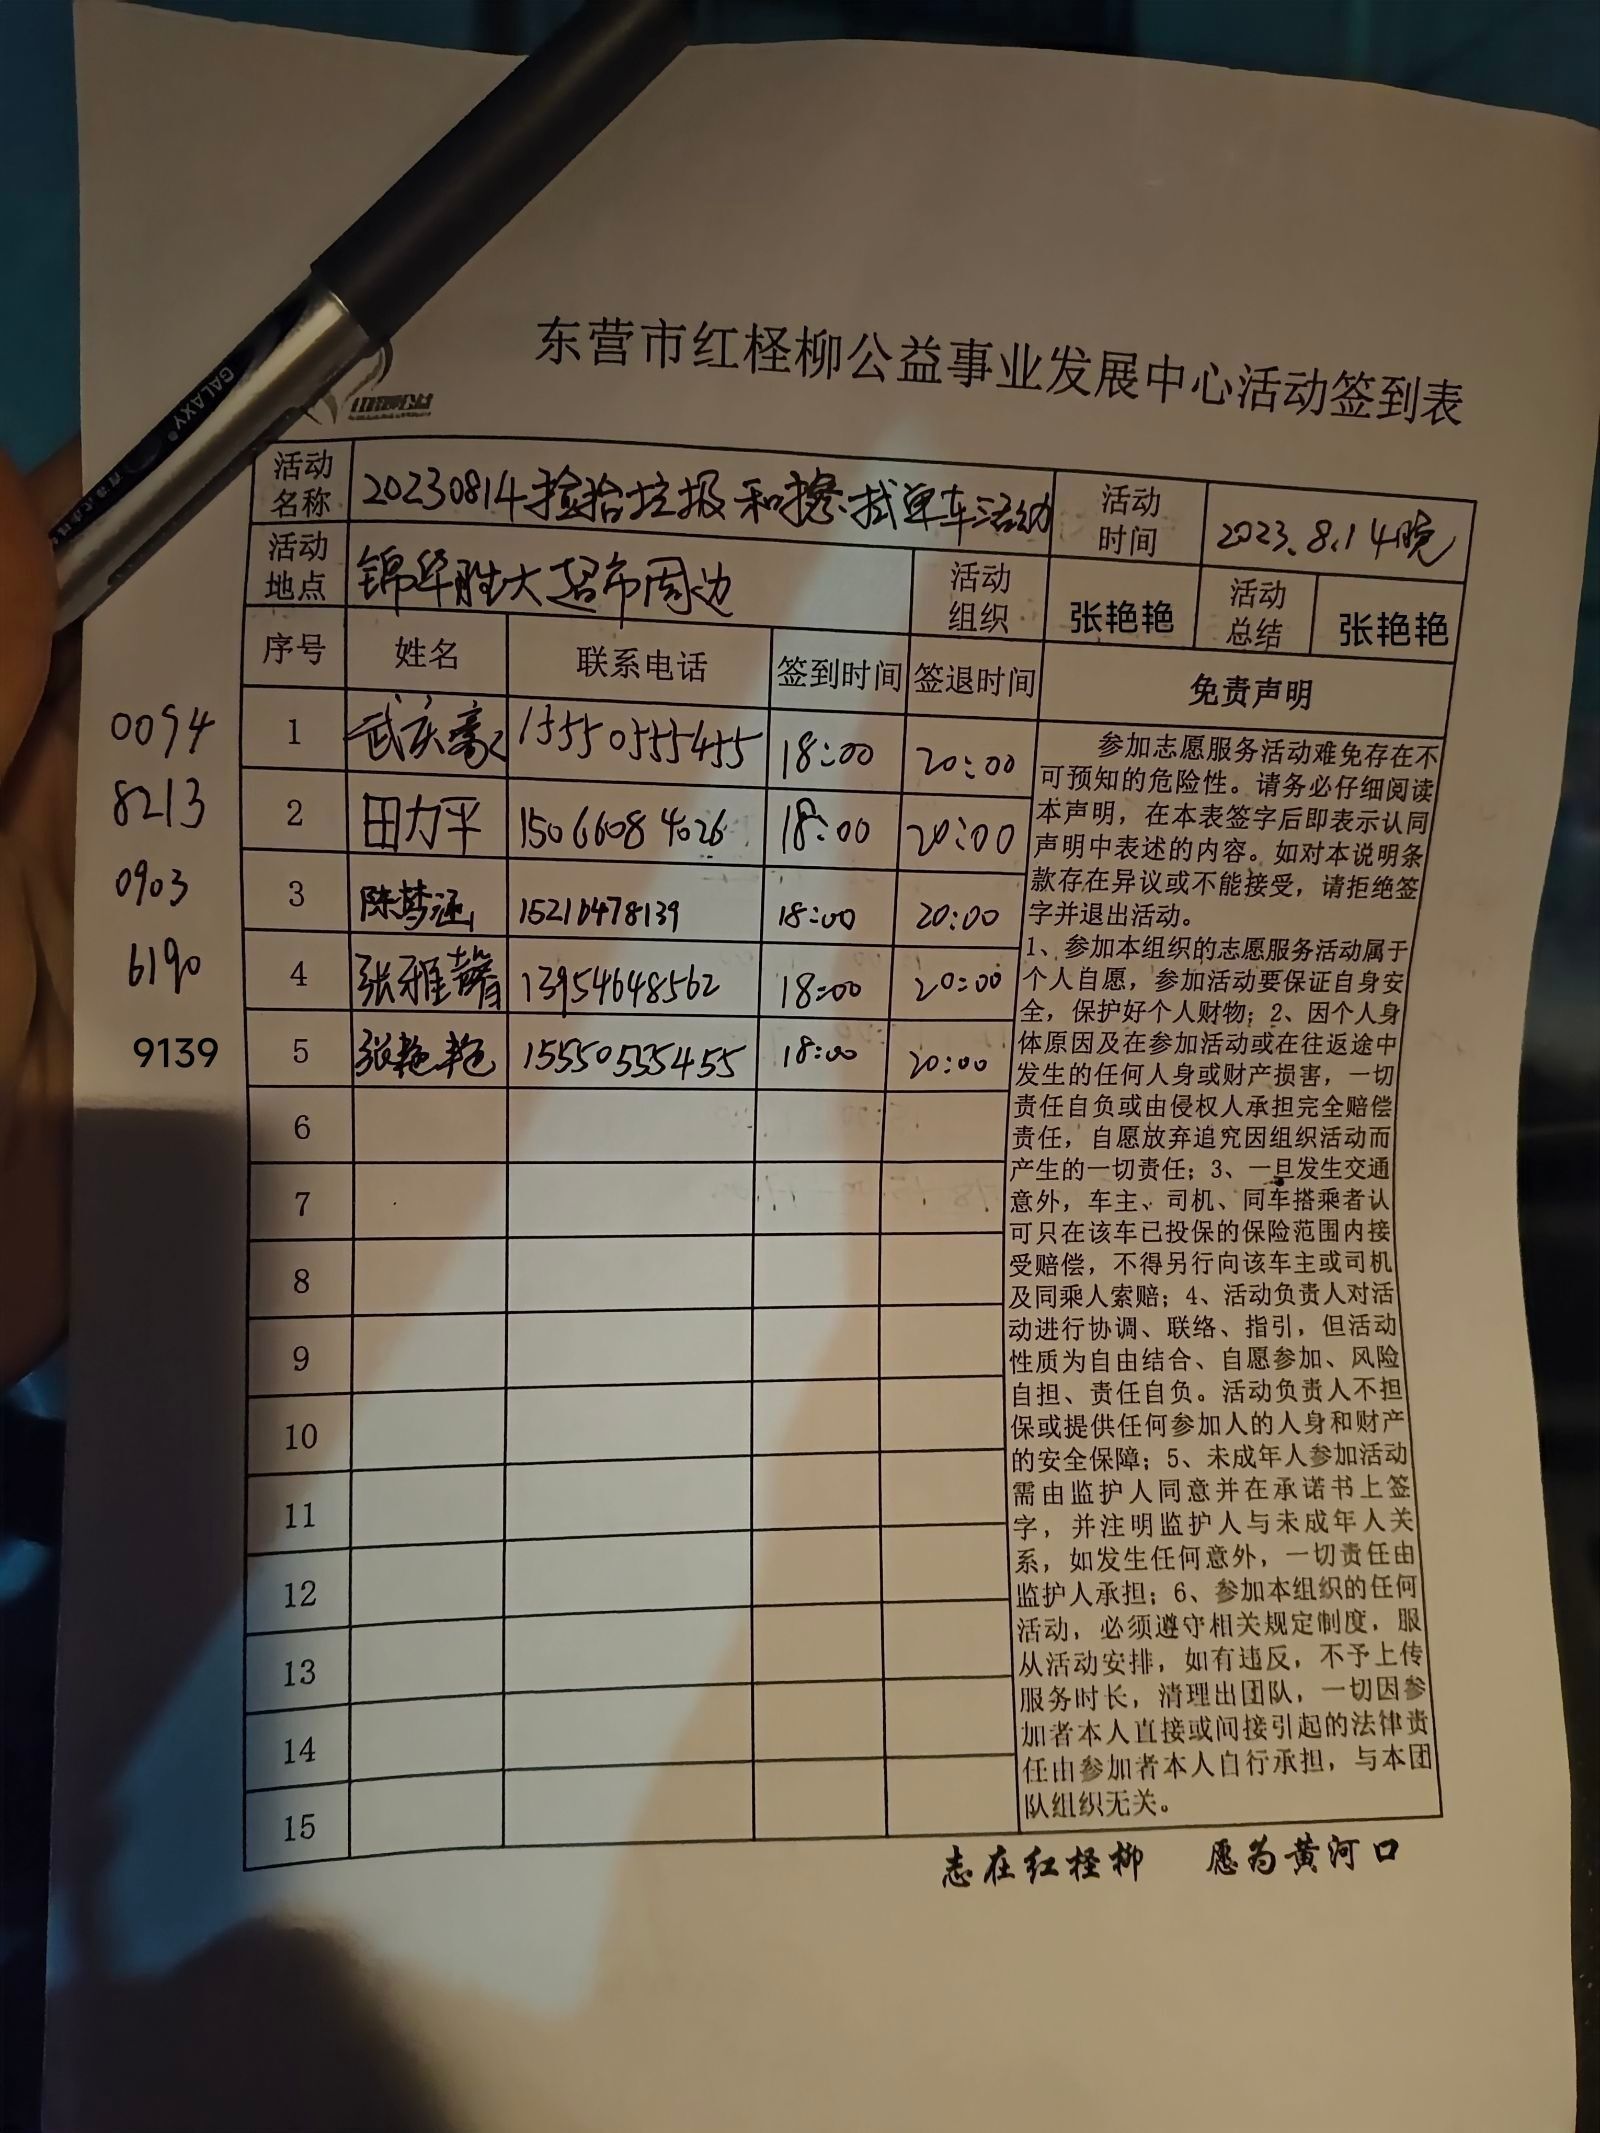 GALAXY®
东营市红柽柳公益事业发展中心活动签到表
活动名称 20230814捡拾垃圾和擦拭单车活动 活动时间 2023.8.14晚
活动地点 锦华胜大超市周边 活动组织 张艳艳 活动总结 张艳艳
序号 姓名 联系电话 签到时间 签退时间 免责声明
0094 1 武庆豪 15550555455 18:00 20:00
8213 2 田力平 15066084026 18:00 20:00
0903 3 陈梦涵 15210478139 18:00 20:00
6190 4 张雅馨 13954648562 18:00 20:00
9139 5 张艳艳 15550555455 18:00 20:00
6
7
8
9
10
11
12
13
14
15
参加志愿服务活动难免存在不
可预知的危险性。请务必仔细阅读
本声明，在本表签字后即表示认同
声明中表述的内容。如对本说明条
款存在异议或不能接受，请拒绝签
字并退出活动。
1、参加本组织的志愿服务活动属于
个人自愿，参加活动要保证自身安
全，保护好个人财物；2、因个人身
体原因及在参加活动或在往返途中
发生的任何人身或财产损害，一切
责任自负或由侵权人承担完全赔偿
责任，自愿放弃追究因组织活动而
产生的一切责任；3、一旦发生交通
意外，车主、司机、同车搭乘者认
可只在该车已投保的保险范围内接
受赔偿，不得另行向该车主或司机
及同乘人索赔；4、活动负责人对活
动进行协调、联络、指引，但活动
性质为自由结合、自愿参加、风险
自担、责任自负。活动负责人不担
保或提供任何参加人的人身和财产
的安全保障；5、未成年人参加活动
需由监护人同意并在承诺书上签
字，并注明监护人与未成年人关
系，如发生任何意外，一切责任由
监护人承担；6、参加本组织的任何
活动，必须遵守相关规定制度，服
从活动安排，如有违反，不予上传
服务时长，清理出团队，一切因参
加者本人直接或间接引起的法律责
任由参加者本人自行承担，与本团
队组织无关。
志在红柽柳 愿为黄河口